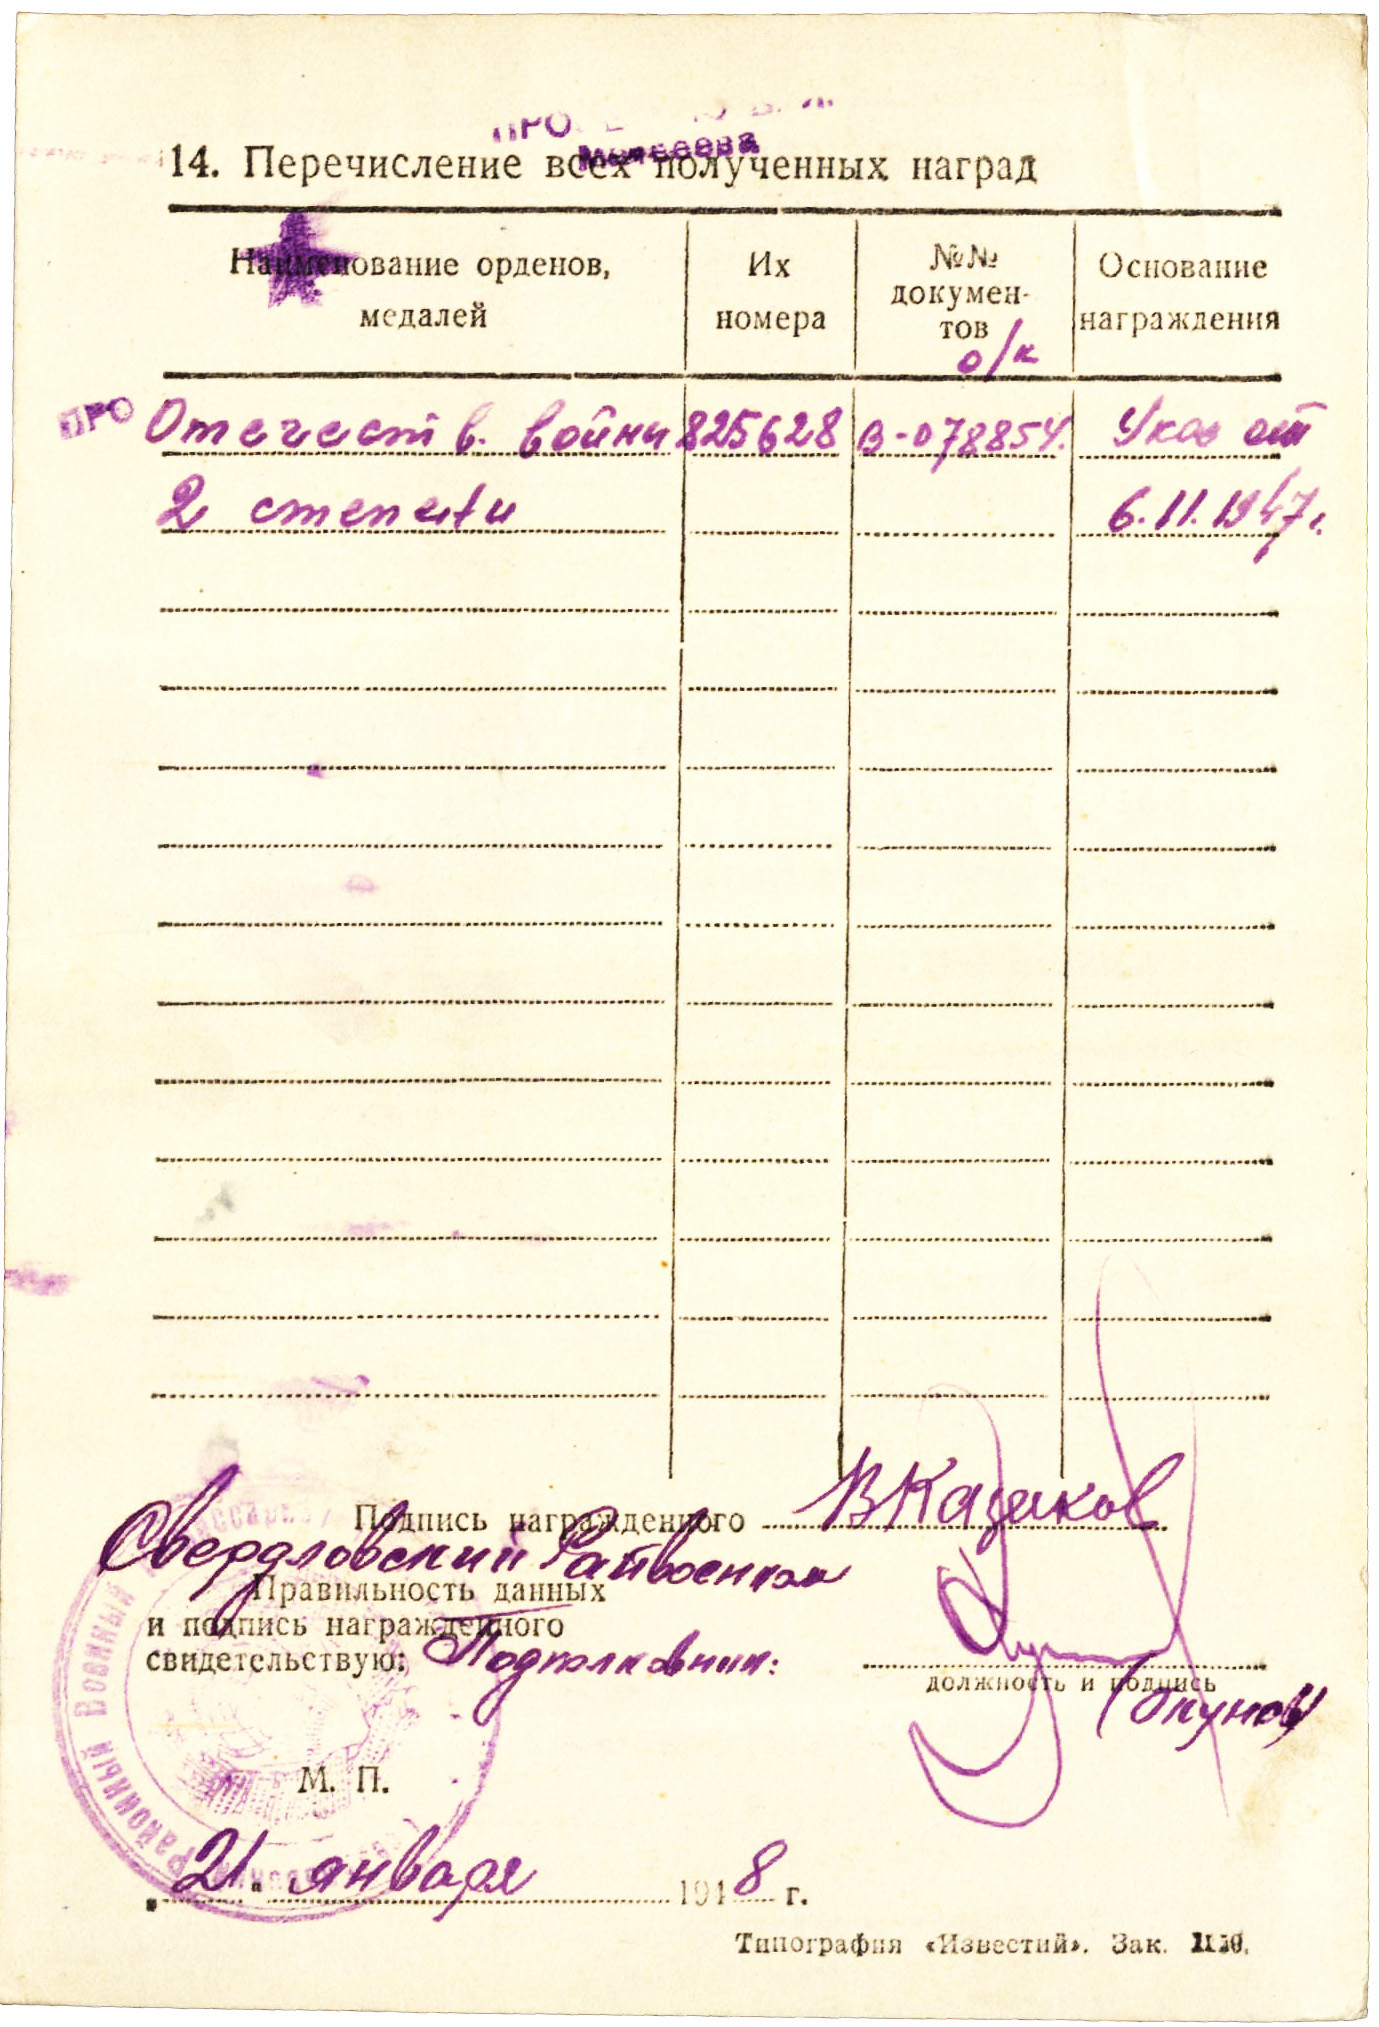 Матвеева
14. Перечисление всех полученных наград
Наименование орденов, медалей
Их номера
№№ докумен-тов
о/к
Основание награждения
ПРО
Отечеств. войны 825628 В-078854. Указ от
2 степени 6.11.1947г.
Подпись награжденного В Казаков
Свердловский Райвоенком
Правильность данных
и подпись награжденного
свидетельствую: Подполковник:
должность и подпись
(Окунов)
Районный Военный
М. П.
„21" января 1948 г.
Типография «Известий». Зак.